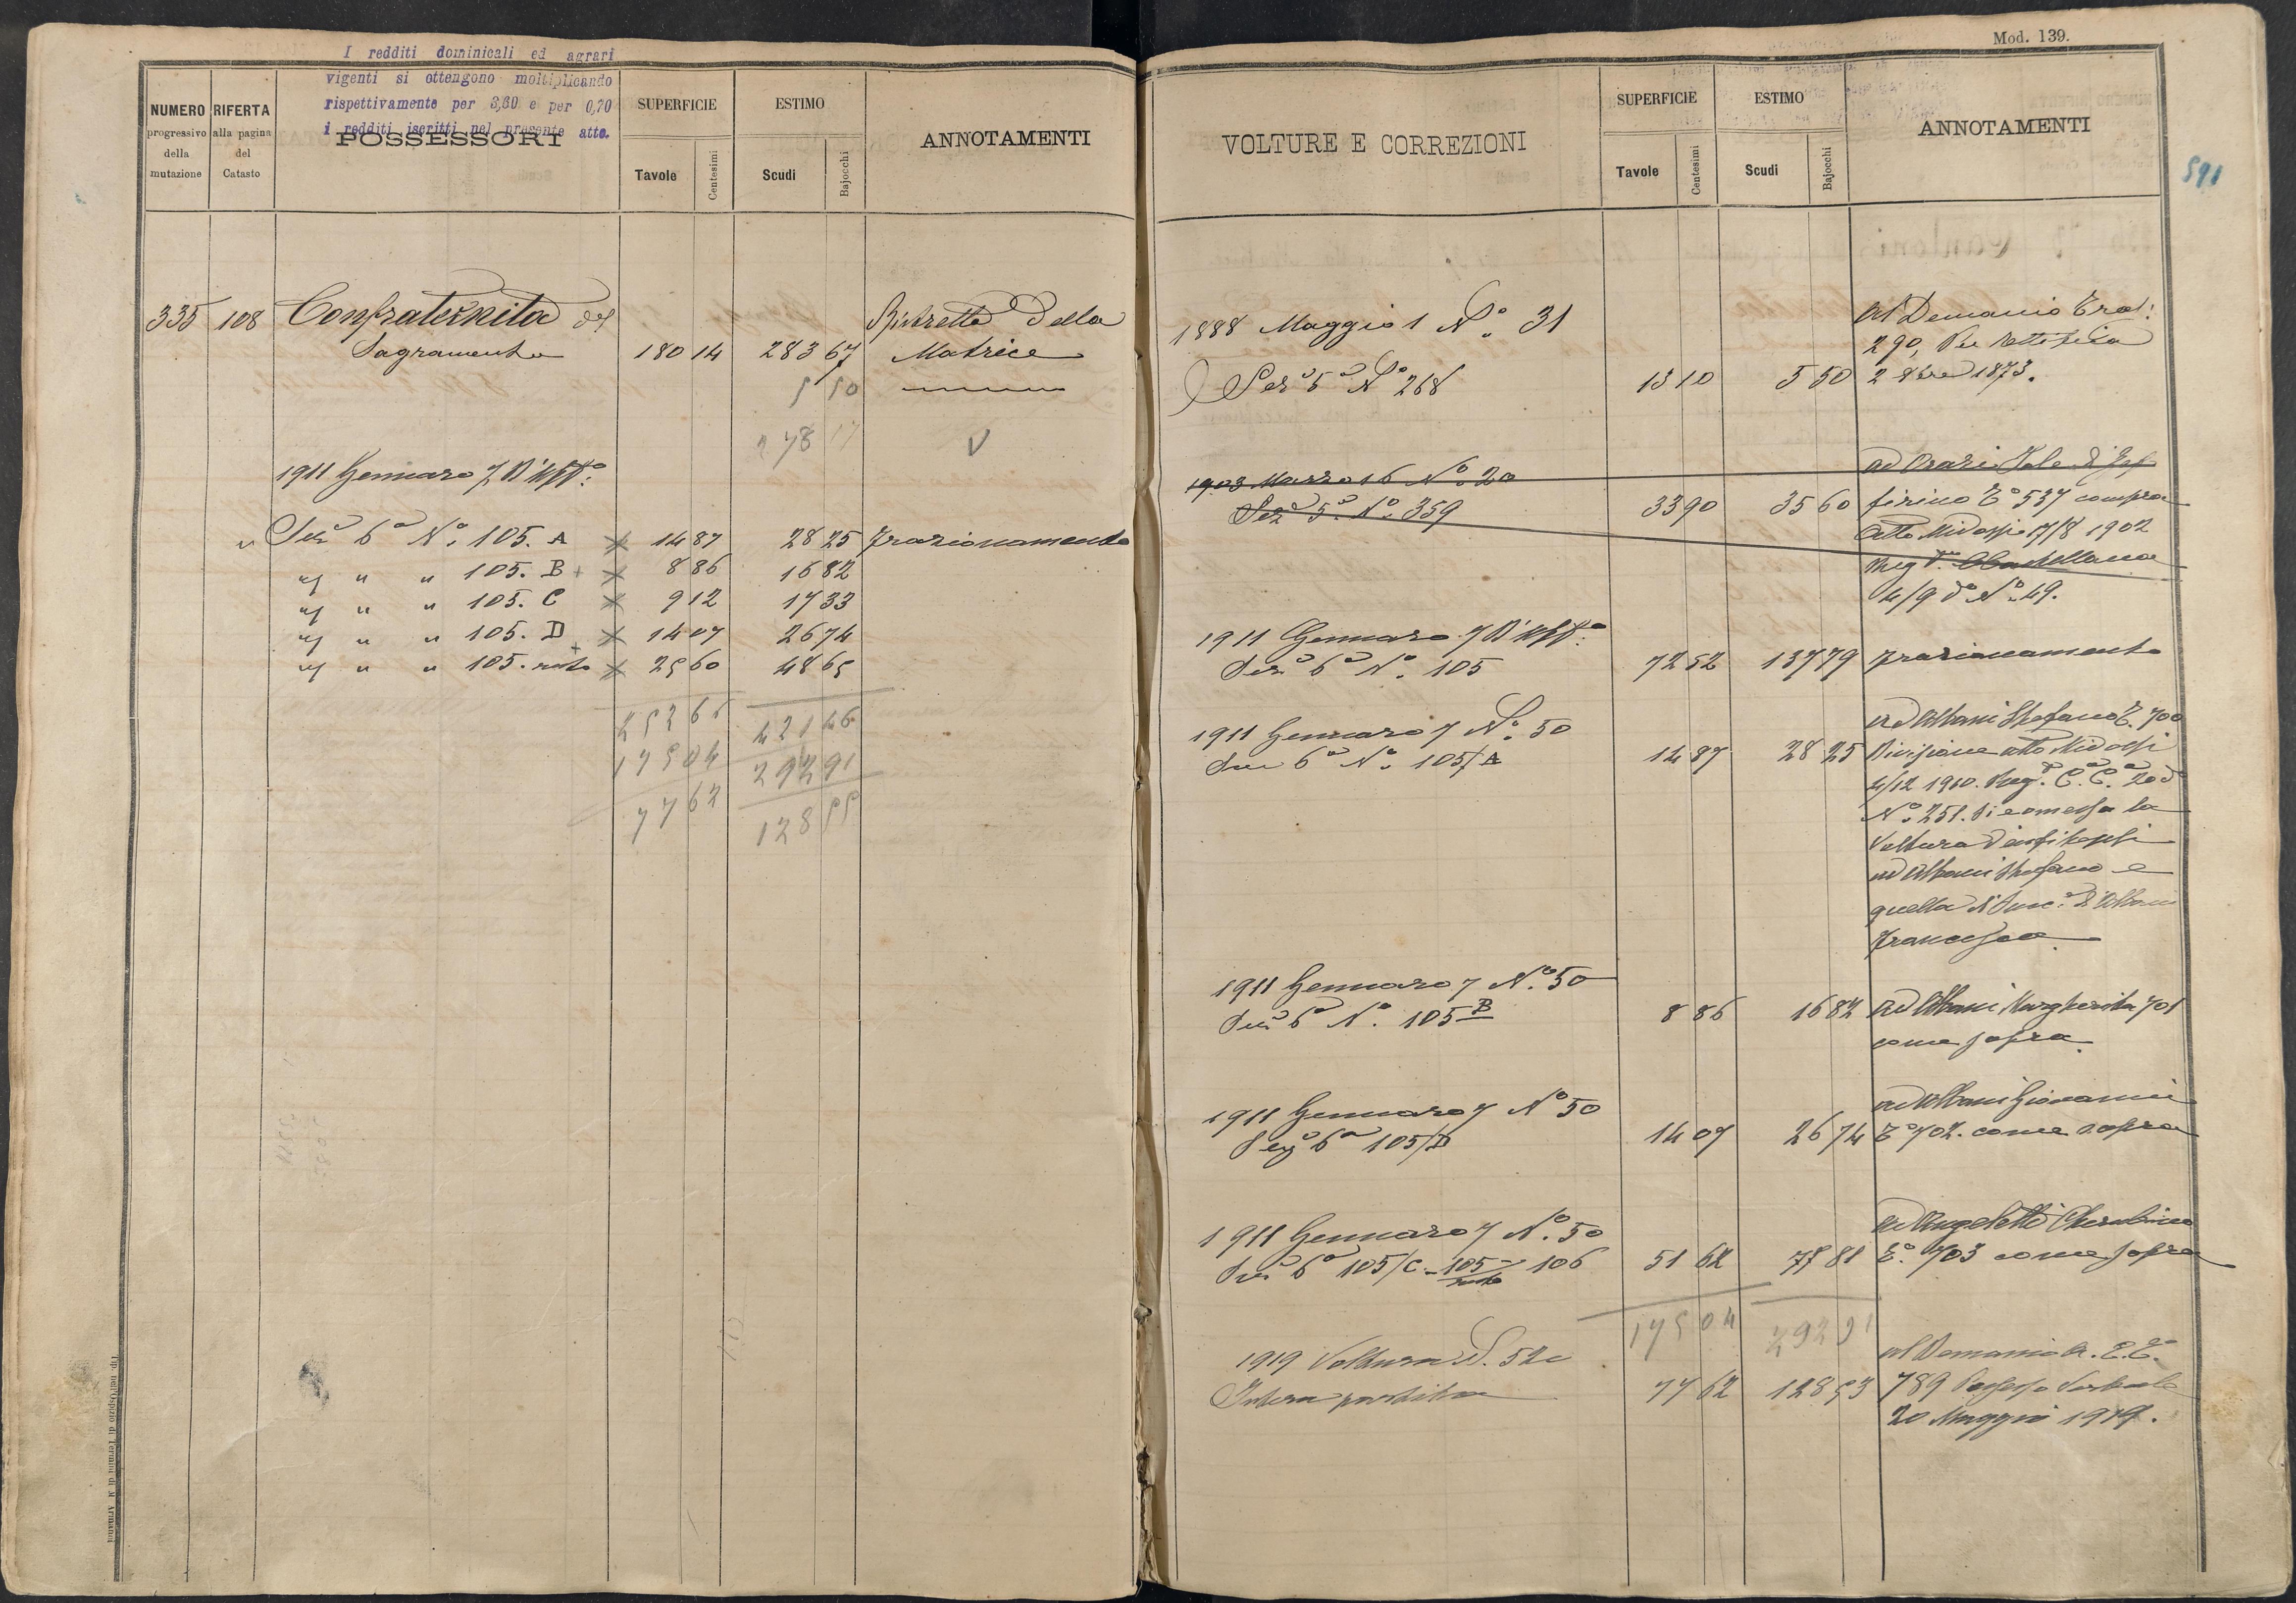 I redditi dominicali ed agrari
vigenti si ottengono moltiplicando
rispettivamente per 3,60 e per 0,70
i redditi iscritti nel presente atto.
NUMERO progressivo della mutazione
RIFERTA alla pagina del Catasto
POSSESSORI
SUPERFICIE
Tavole
Centesimi
ESTIMO
Scudi
Bajocchi
ANNOTAMENTI
335 108 Confraternita del Ristretto della
Sagramento 180 14 283 67 Matrice
5 50
278 17
1911 Gennaro 7
Sez 6a No. 105. A 14 87 28 25 Frazionamento
" " " 105. B 8 86 16 82
" " " 105. C 9 12 17 33
" " " 105. D 14 07 26 74
" " " 105. resto 25 60 48 65
252 66 421 46
175 04 292 91
77 62 128 55
Tip. dell'Ospizio di Termini di M. Armanni
Mod. 139.
591
VOLTURE E CORREZIONI
SUPERFICIE
Tavole
Centesimi
ESTIMO
Scudi
Bajocchi
ANNOTAMENTI
1888 Maggio 1 No. 31 al Demanio
290, Per rettifica
Seza 5a No 268 13 10 5 50 2 8bre 1873.
1903 Marzo 16 No. 20
Seza 5a No. 359 33 90 35 60 To 537 compra
Atto Midossi 17/8 1902
Reg. Castellana
4/9 do No. 49.
1911 Gennaro 7
Seza 6a No. 105 72 52 137 79 Frazionamento
ad Albani Stefano T. 700
1911 Gennaro 7 No. 50
Seza 6a No. 105/A 14 87 28 25 Divisione atto Midossi
4/12 1910. Reg. C. Ca. 20 do
No. 251. Si è omessa la
Voltura d'enfiteusi
ad Albani Stefano e
quella di Succ. d'Albani
Francesco
1911 Gennaro 7 No. 50
Seza 6a No. 105 B 8 86 16 82 ad Albani Margherita 701
come sopra
ad Albani Giovanni
1911 Gennaro 7 No 50
Sez 6a 105/D 14 07 26 74 To 702. come sopra
ad Angeletti Cherubino
1911 Gennaro 7 No. 50
Seza 6a 105/C - 105 resto - 106 51 62 77 81 To. 703 come sopra
175 04 292 91
1919 Voltura N. 52 al Demanio
Intera partita 77 62 128 53 789 Possesso Verbale
20 Maggio 1919.